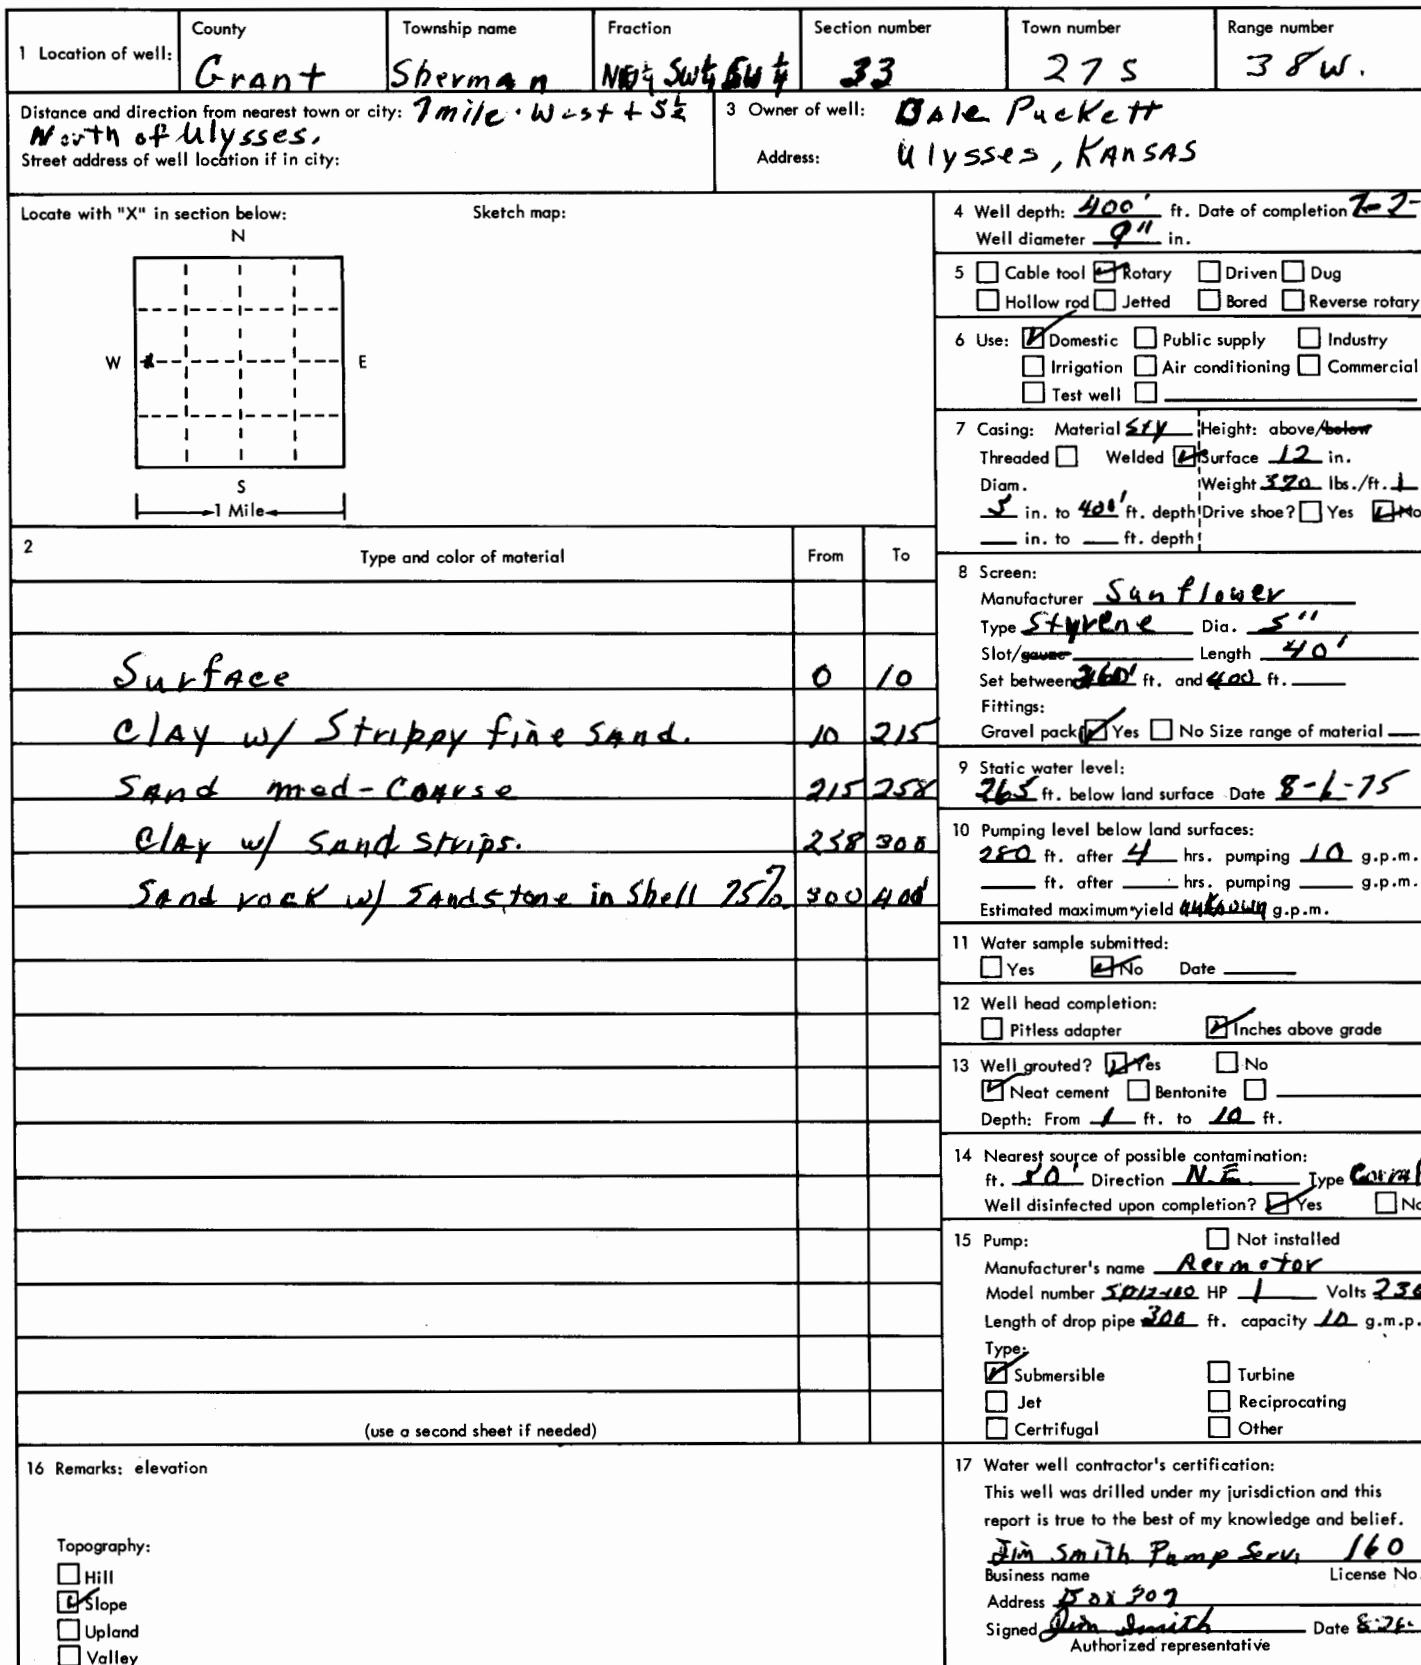 1 Location of well: County Township name Fraction Section number Town number Range number
Grant Sherman SW¼ 33 27 S 38 W.
Distance and direction from nearest town or city: 7 mile West + 5½
North of Ulysses.
Street address of well location if in city:
3 Owner of well: Dale Puckett
Address: Ulysses, Kansas
Locate with "X" in section below: Sketch map:
N
W X E
S
1 Mile
2 Type and color of material From To
Surface 0 10
Clay w/ Strippy fine Sand. 10 215
Sand med-Coarse 215 258
Clay w/ Sand strips. 258 300
Sand rock w/ Sandstone in Shell 75% 300 400'
(use a second sheet if needed)
16 Remarks: elevation
Topography:
Hill
Slope
Upland
Valley
4 Well depth: 400' ft. Date of completion 7-2-
Well diameter 9" in.
5 Cable tool Rotary Driven Dug
Hollow rod Jetted Bored Reverse rotary
6 Use: Domestic Public supply Industry
Irrigation Air conditioning Commercial
Test well
7 Casing: Material Sty Height: above/below
Threaded Welded Surface 12 in.
Diam. Weight 370 lbs./ft. 1
5 in. to 400' ft. depth Drive shoe? Yes No
in. to ft. depth
8 Screen:
Manufacturer Sunflower
Type Styrene Dia. 5"
Slot/gauze Length 40'
Set between 360' ft. and 400 ft.
Fittings:
Gravel pack Yes No Size range of material
9 Static water level:
265 ft. below land surface Date 8-6-75
10 Pumping level below land surfaces:
280 ft. after 4 hrs. pumping 10 g.p.m.
ft. after hrs. pumping g.p.m.
Estimated maximum yield unknown g.p.m.
11 Water sample submitted:
Yes No Date
12 Well head completion:
Pitless adapter Inches above grade
13 Well grouted? Yes No
Neat cement Bentonite
Depth: From 1 ft. to 10 ft.
14 Nearest source of possible contamination:
ft. 50' Direction N.E. Type Corral
Well disinfected upon completion? Yes No
15 Pump: Not installed
Manufacturer's name Aermotor
Model number SD12-100 HP 1 Volts 230
Length of drop pipe 300 ft. capacity 10 g.m.p.
Type:
Submersible Turbine
Jet Reciprocating
Certrifugal Other
17 Water well contractor's certification:
This well was drilled under my jurisdiction and this
report is true to the best of my knowledge and belief.
Jim Smith Pump Serv. 160
Business name License No.
Address Box 307
Signed Jim Smith Date 8-26-
Authorized representative